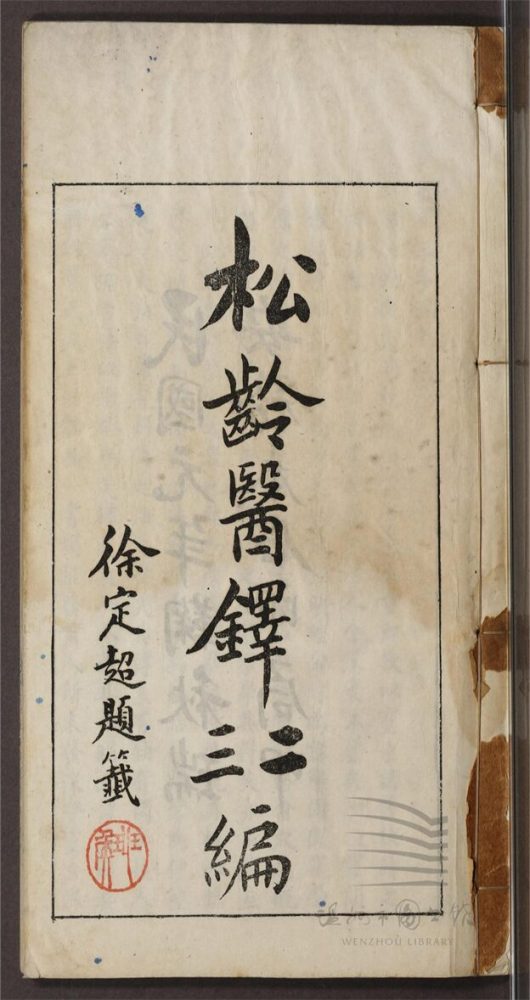 松齡醫鐸二三編
徐定超題籤
WENZHOU LIBRARY